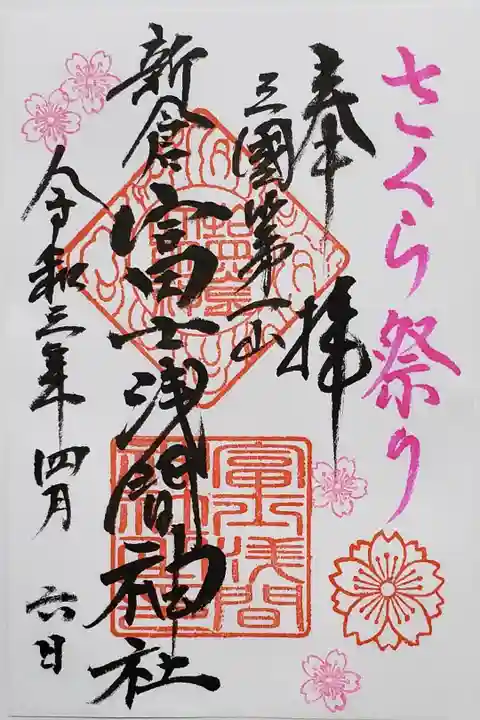 さくら祭り
奉拝
三國第一山
新倉
富士浅間神社
令和三年四月六日
冨士浅間